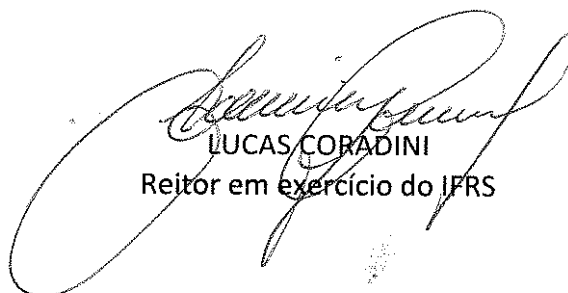 LUCAS CORADINI
Reitor em exercício do IFRS